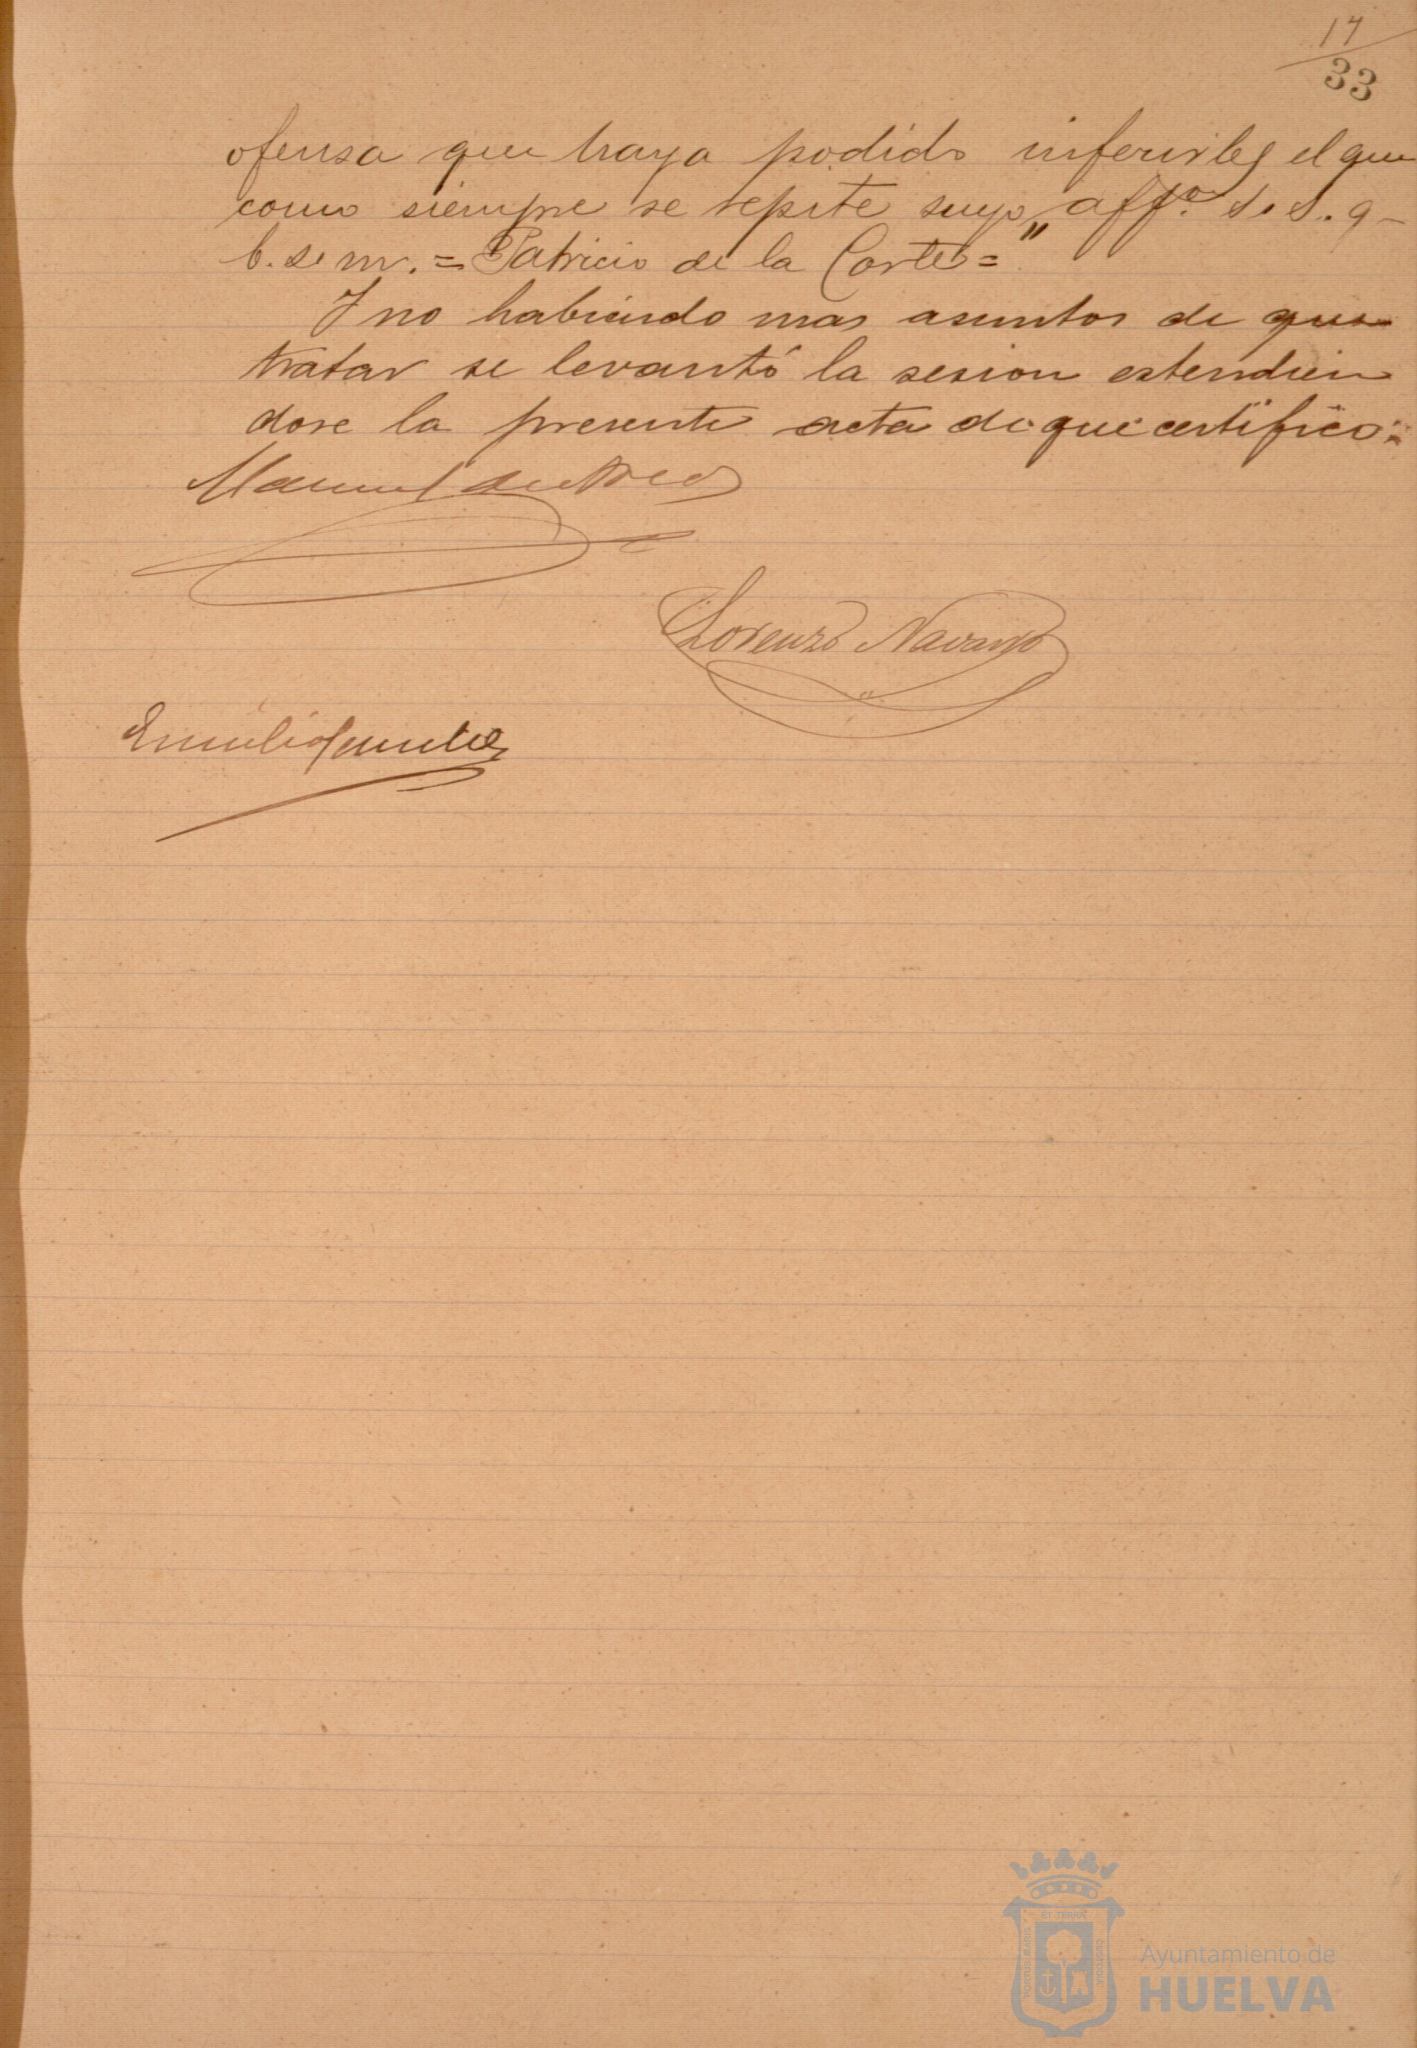 17
33
ofensa que haya podido inferirles el que
como siempre se repite suyo affº S. S. q-
b. s. m. = Patricio de la Corte = "
Y no habiendo mas asuntos de que
tratar se levantó la sesion estendien
dose la presente acta de que certifico:=
Manuel
Lorenzo Navarro
Emilio
ET TERRA
Ayuntamiento de
HUELVA